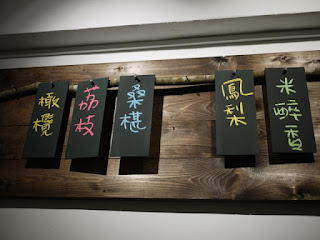 橄欖
荔枝
桑椹
鳳梨
米醉香